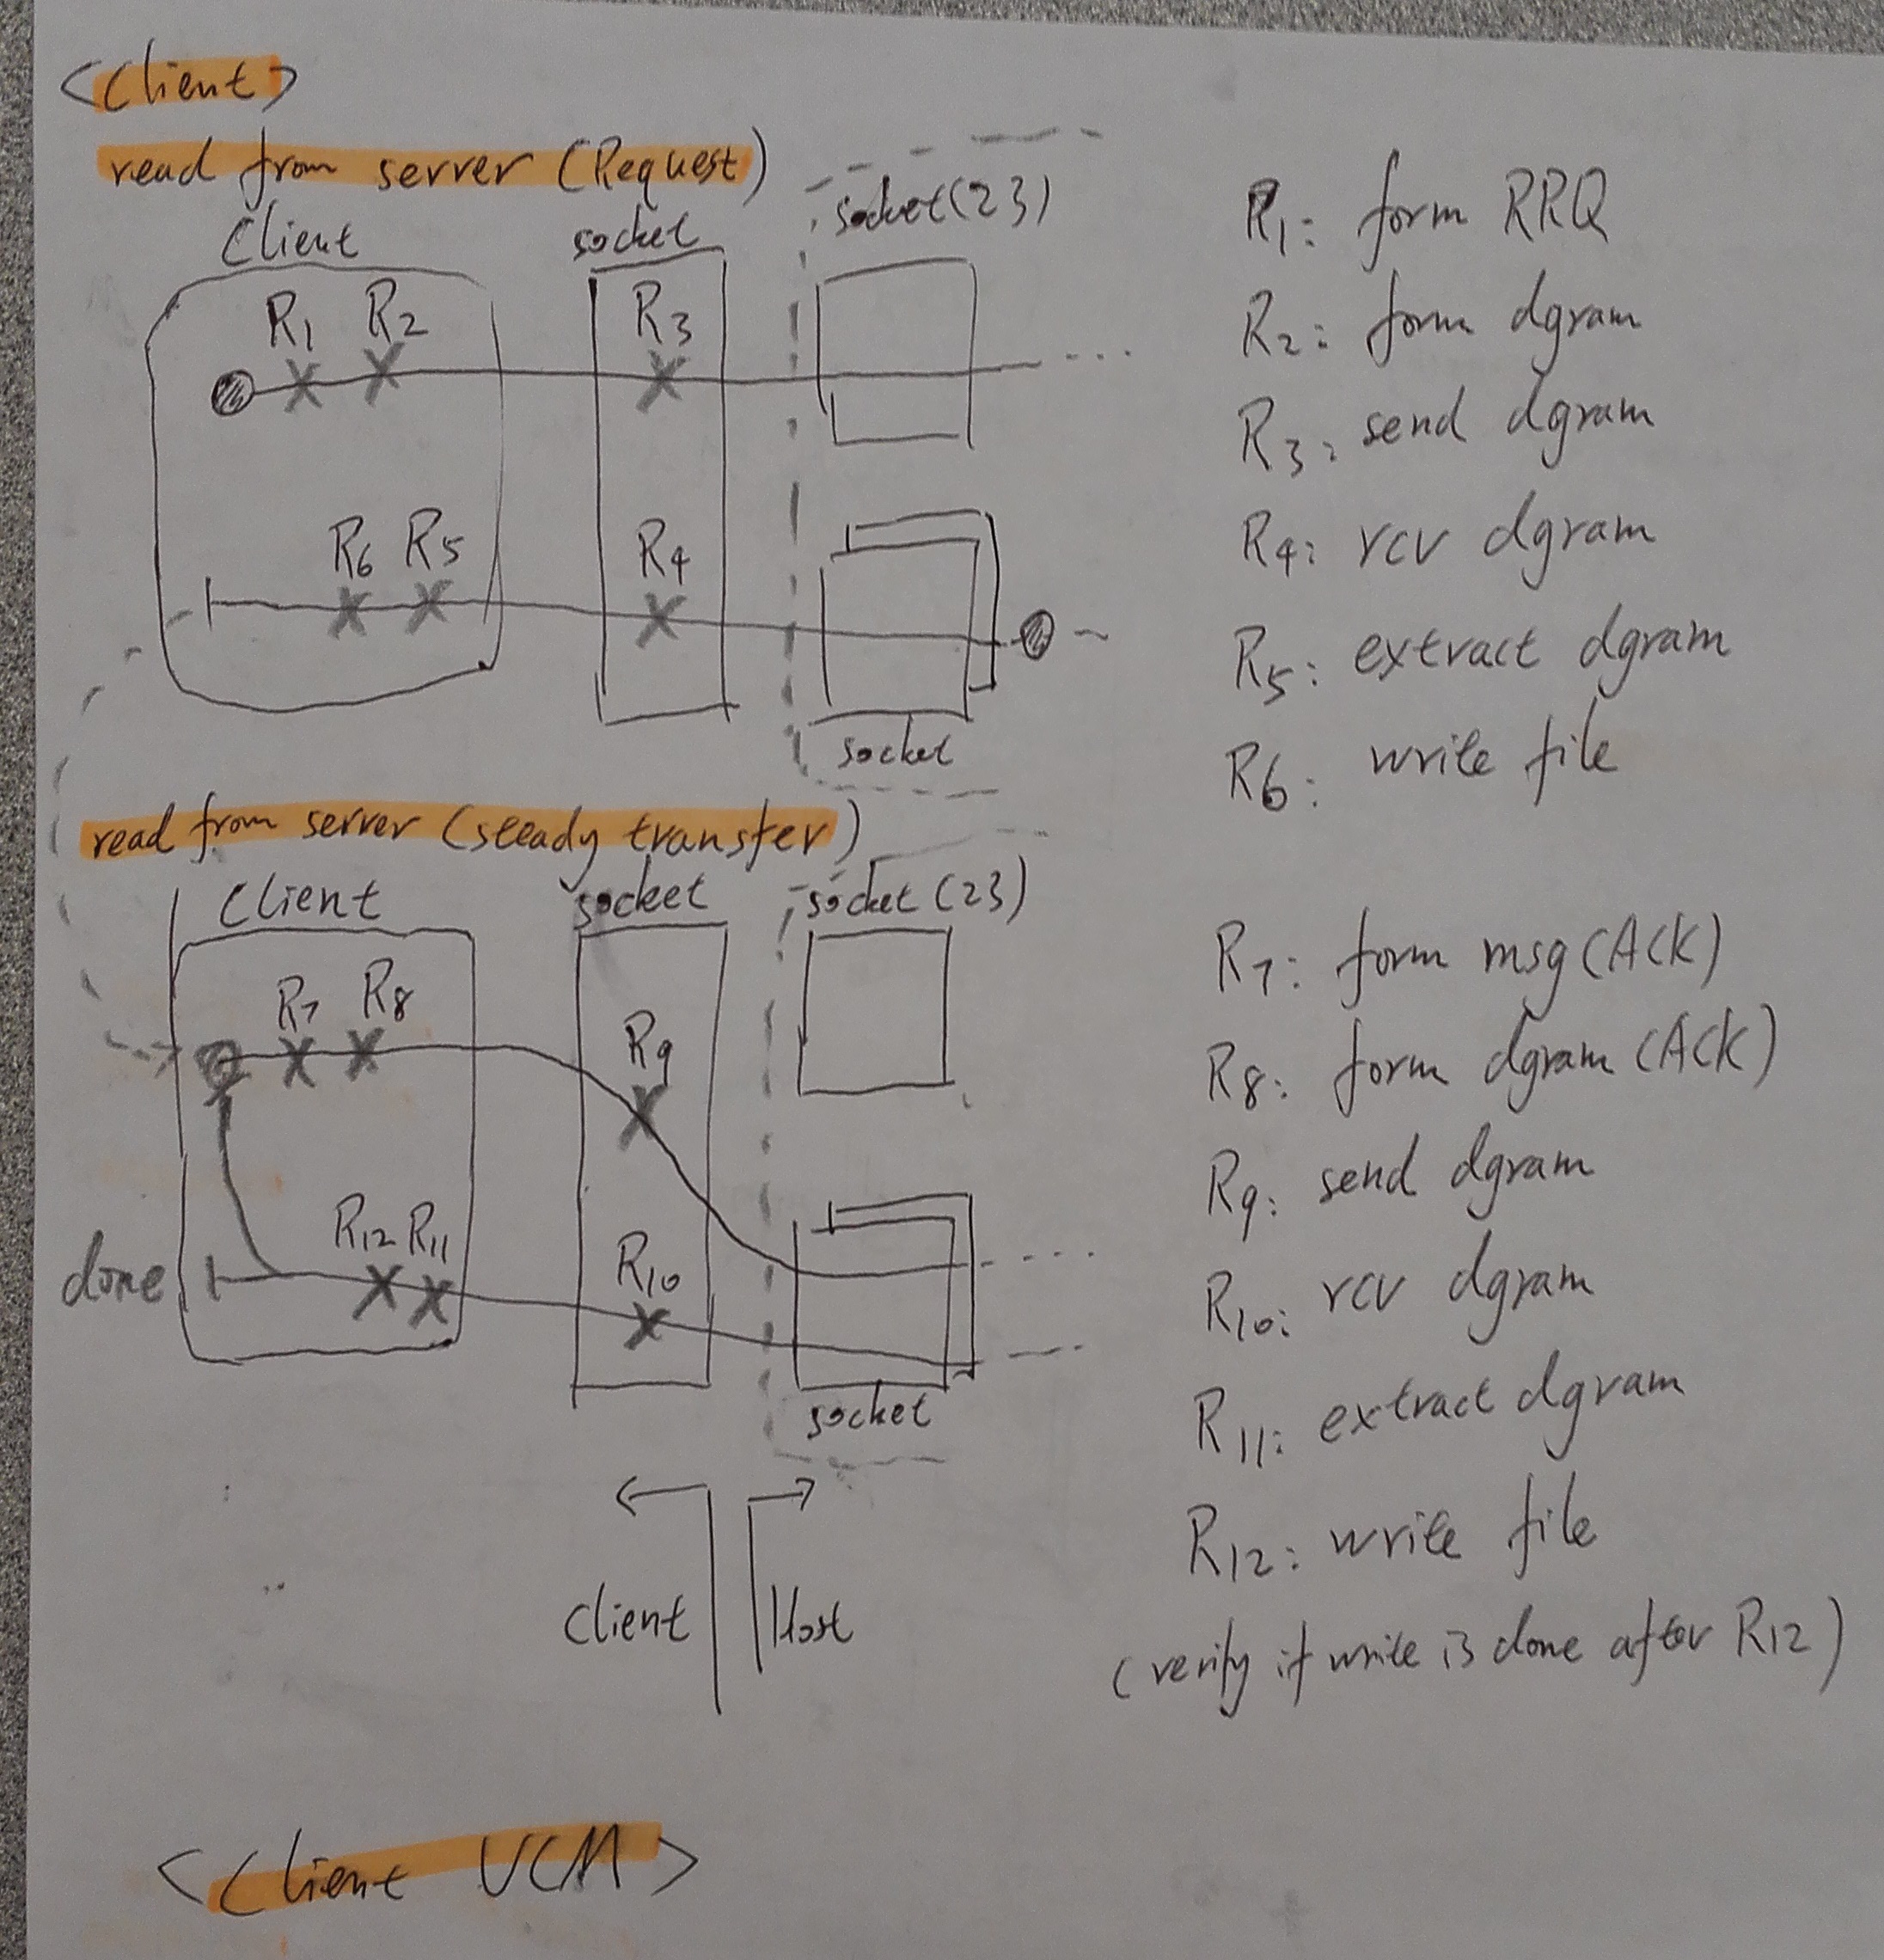 <Client>
read from server (Request)
Client
socket
socket(23)
R1 R2
R3
R6 R5
R4
socket
R1: form RRQ
R2: form dgram
R3: send dgram
R4: rcv dgram
R5: extract dgram
R6: write file
read from server (steady transfer)
Client
socket
socket (23)
R7 R8
R9
R12 R11
R10
done
socket
R7: form msg (ACK)
R8: form dgram (ACK)
R9: send dgram
R10: rcv dgram
R11: extract dgram
R12: write file
(verify if write is done after R12)
Client
Host
<Client UCM>